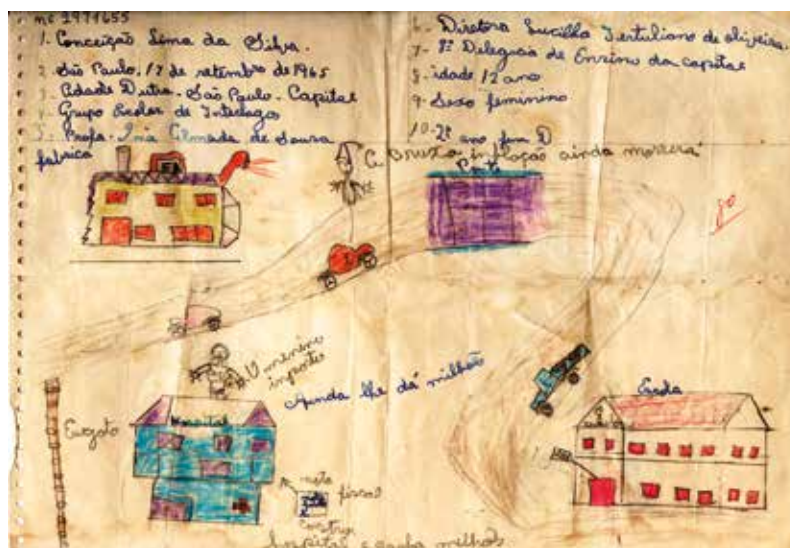 nº 1977655
1- Conceição Lima da Silva.
2. São Paulo, 17 de setembro de 1965
3. Cidade Dutra - São Paulo - Capital
4- Grupo Escolar de Interlagos
5- Profa. Almada de Souza
6- Diretora Lucilla Tertuliano de oliveira
7- Delegacia de Ensino da capital
8- idade 12 ano
9- Sexo feminino
10- 2º ano D
fabrica
A Bruxa inflação ainda morrerá
O menino
imposto
Ainda lhe dá milhões
Escola
Hospital
Esgoto
nota
fiscal
hospital e ganha milhões